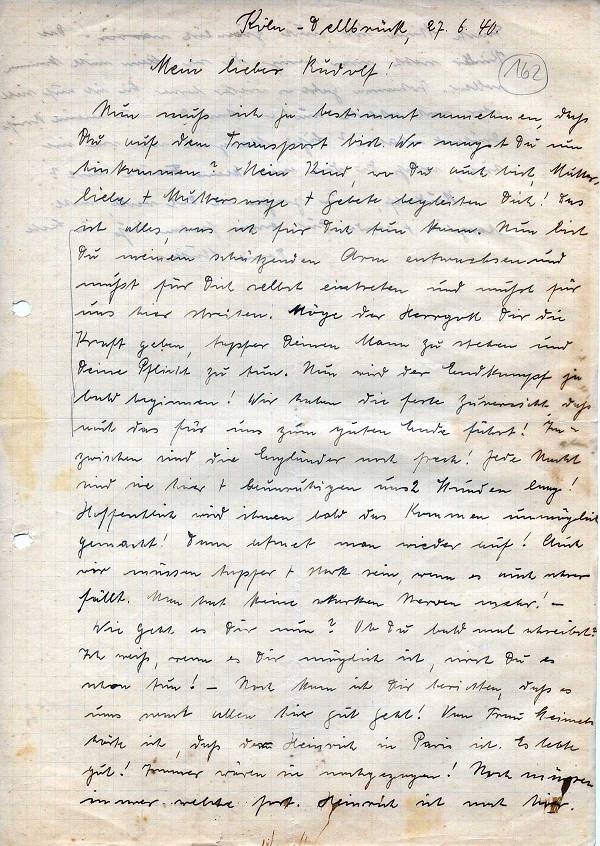 Köln-Dellbrück, 27.6.40.
Mein lieber Rudolf!
162
Nun muß ich ja bestimmt annehmen, daß
Du auf dem Transport bist. Wo magst Du nun
hinkommen? Mein Kind, wo Du auch bist, Mutter-
liebe + Muttersorge + Gebete begleiten Dich! Das
ist alles, was ich für Dich tun kann. Nun bist
Du meinem schützenden Arm entwachsen und
mußt für Dich selbst eintreten und mußt für
uns hier streiten. Möge der Herrgott Dir die
Kraft geben, tapfer Deinen Mann zu stehen und
Deine Pflicht zu tun. Nun wird der Endkampf ja
bald beginnen! Wir haben die feste Zuversicht, daß
auch das für uns zum guten Ende führt! In-
zwischen sind die Engländer noch frech! Jede Nacht
sind sie hier + beunruhigen uns 2 Stunden lang!
Hoffentlich wird ihnen bald das Kommen unmöglich
gemacht! Dann atmet man wieder auf! Auch
wir müssen tapfer + stark sein, wenn es auch schwer
fällt. Man hat keine starken Nerven mehr! -
Wie geht es Dir nun? Ob Du bald mal schreibst?
Ich weiß, wenn es Dir möglich ist, wirst Du es
schon tun! - Noch kann ich Dir berichten, daß es
uns sonst allen hier gut geht! Von Frau
hörte ich, daß Heinrich in Paris ist. Es lebe
gut! Immer wären sie nachgezogen! Noch müssen
immer welche fort. Heinrich ist noch hier.